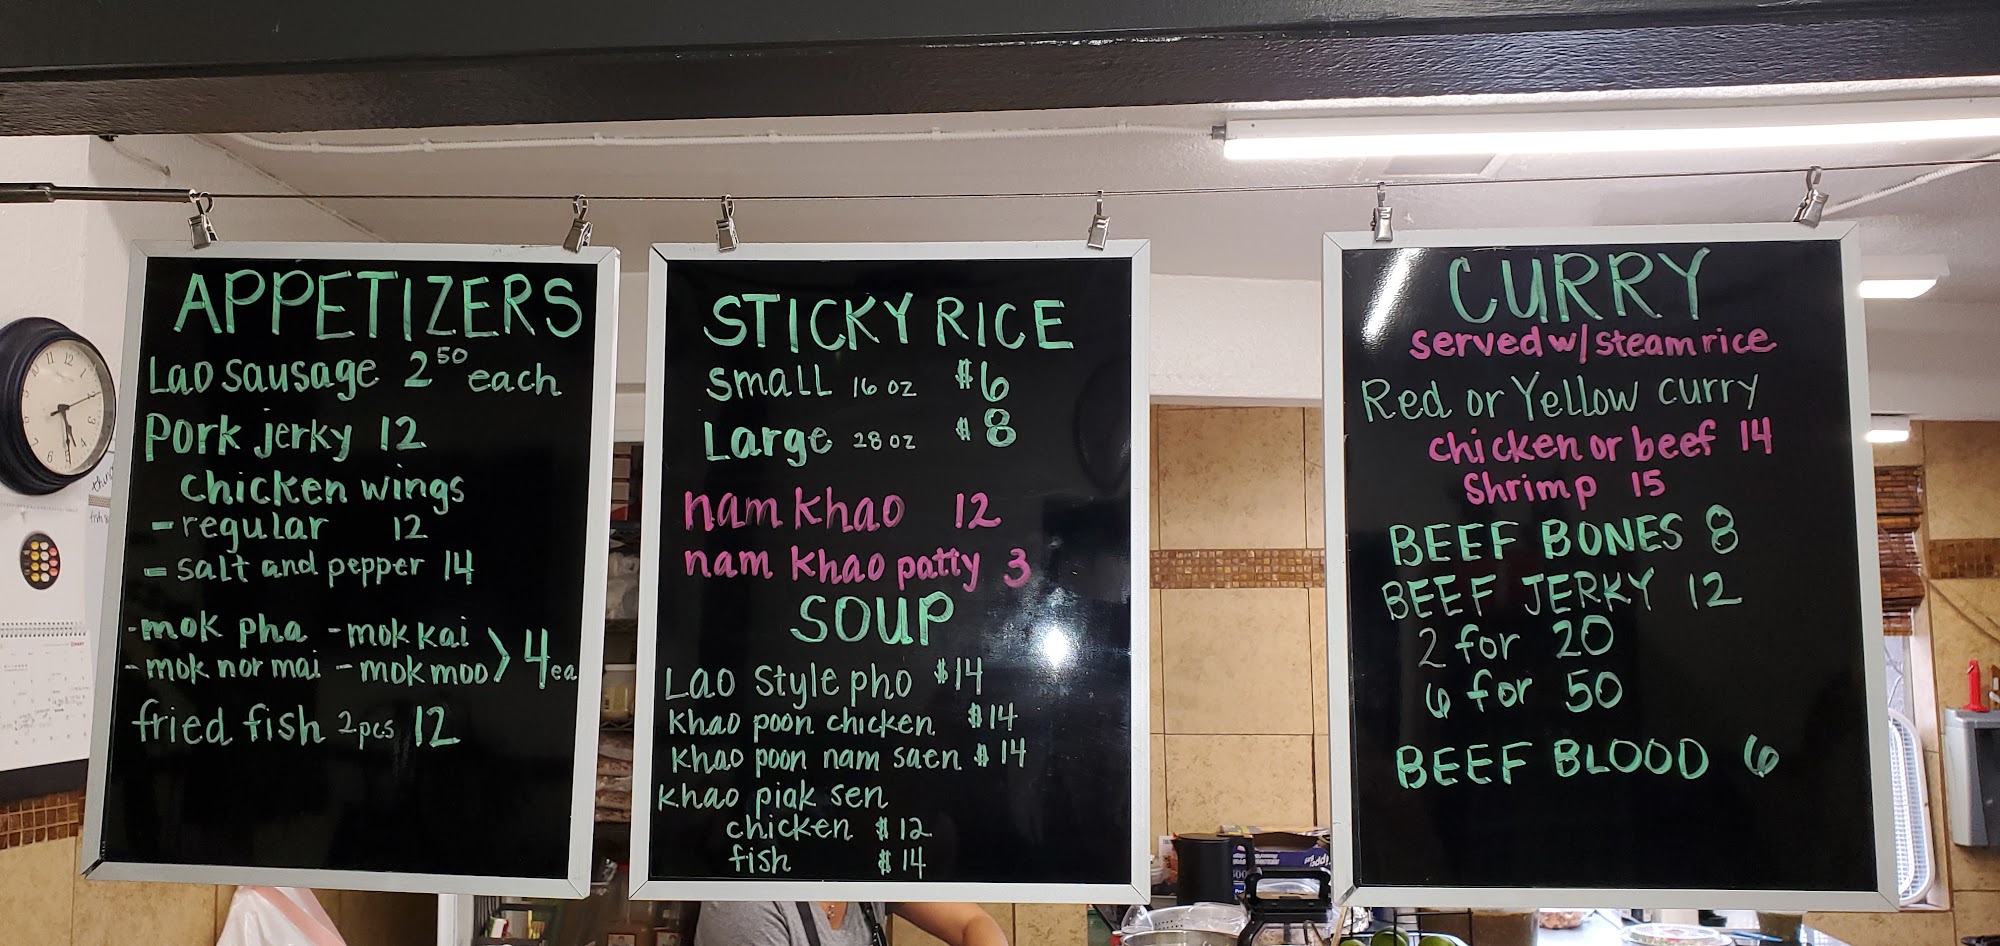 APPETIZERS
Lao sausage 2⁵⁰ each
Pork jerky 12
chicken wings
- regular 12
- salt and pepper 14
- mok pha - mok kai
- mok nor mai - mok moo > 4 ea
fried fish 2pcs 12
STICKY RICE
Small 16 oz $6
Large 28 oz $8
nam khao 12
nam khao patty 3
SOUP
Lao Style pho $14
khao poon chicken $14
khao poon nam saen $14
khao piak sen
chicken $12
fish $14
CURRY
served w/ steam rice
Red or Yellow curry
chicken or beef 14
Shrimp 15
BEEF BONES 8
BEEF JERKY 12
2 for 20
6 for 50
BEEF BLOOD 6